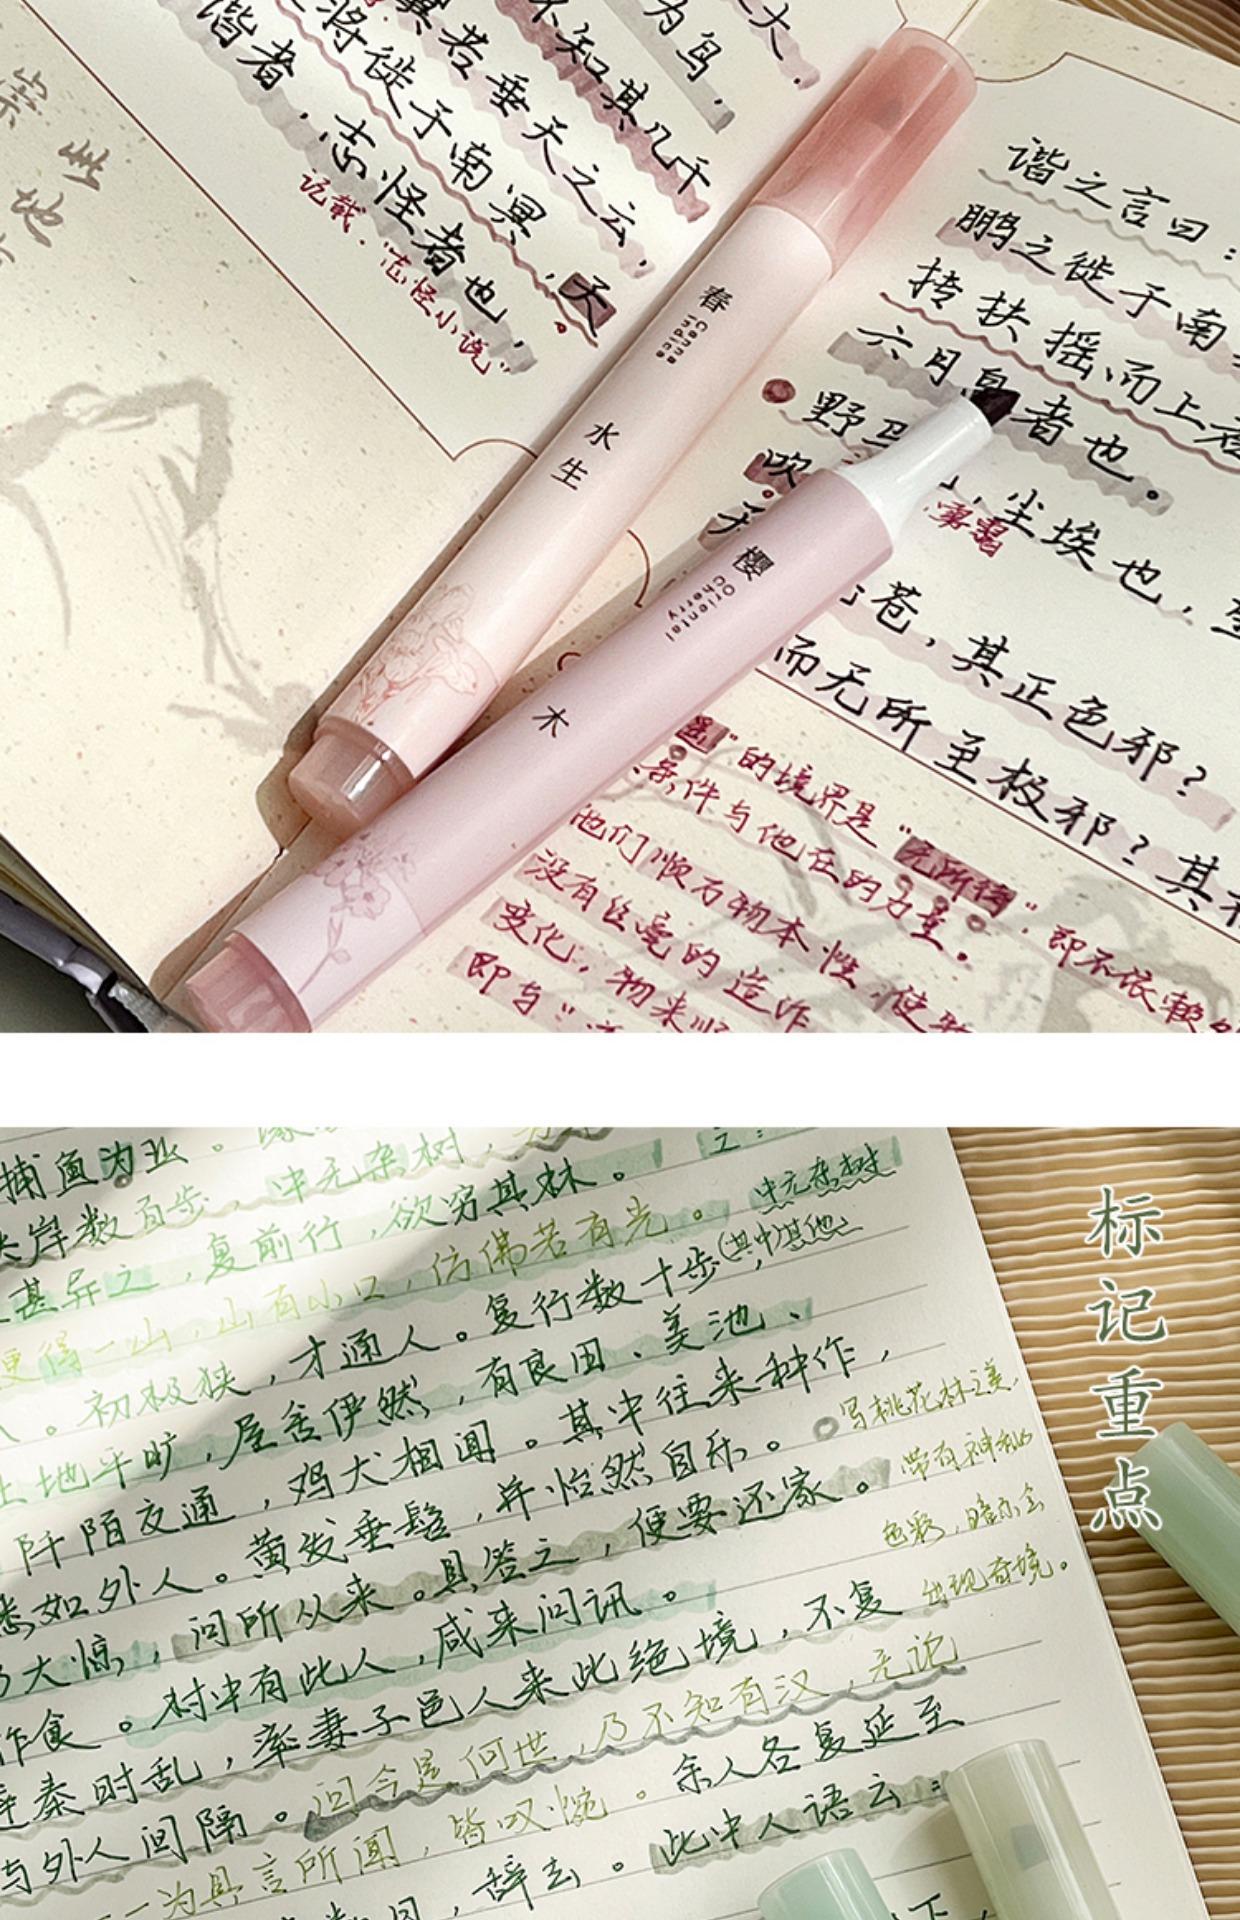 大.
为鸟.
不知其几千
翼若垂天之云,
将徙于南冥,天
谐者.志怪者也.
记载."志怪小说"
谐之言曰:
鹏之徙于南
抟扶摇而上者
六月息者也。
野马
尘埃也,
吹
雾霭
天
苍,其正色邪?
而无所至极邪?其
春
Canna
indica
水
生
樱
Oriental
Cherry
木
"的境界是"无所待",即不依赖
条件与他在的力量。
他们顺万物本性,使
没有丝毫的造作
变化,物来顺
即与"
捕鱼为业。
岸数百步,中无杂树,
甚异之,复前行,欲穷其林。
中无杂树
(其中)其他
便得一山,山有小口,仿佛若有光。
。初极狭,才通人。复行数十步,
土地平旷,屋舍俨然,有良田、美池、
阡陌交通,鸡犬相闻。其中往来种作,
悉如外人。黄发垂髫,并怡然自乐。
写桃花林之美,
带有神秘
色彩,暗示会
出现奇境。
大惊,问所从来。具答之,便要还家。
作食。村中有此人,咸来问讯。
秦时乱,率妻子邑人来此绝境,不复
与外人间隔。问今是何世,乃不知有汉,无论
一一为具言所闻,皆叹惋。余人各复延至
辞去。此中人语云:
标
记
重
点